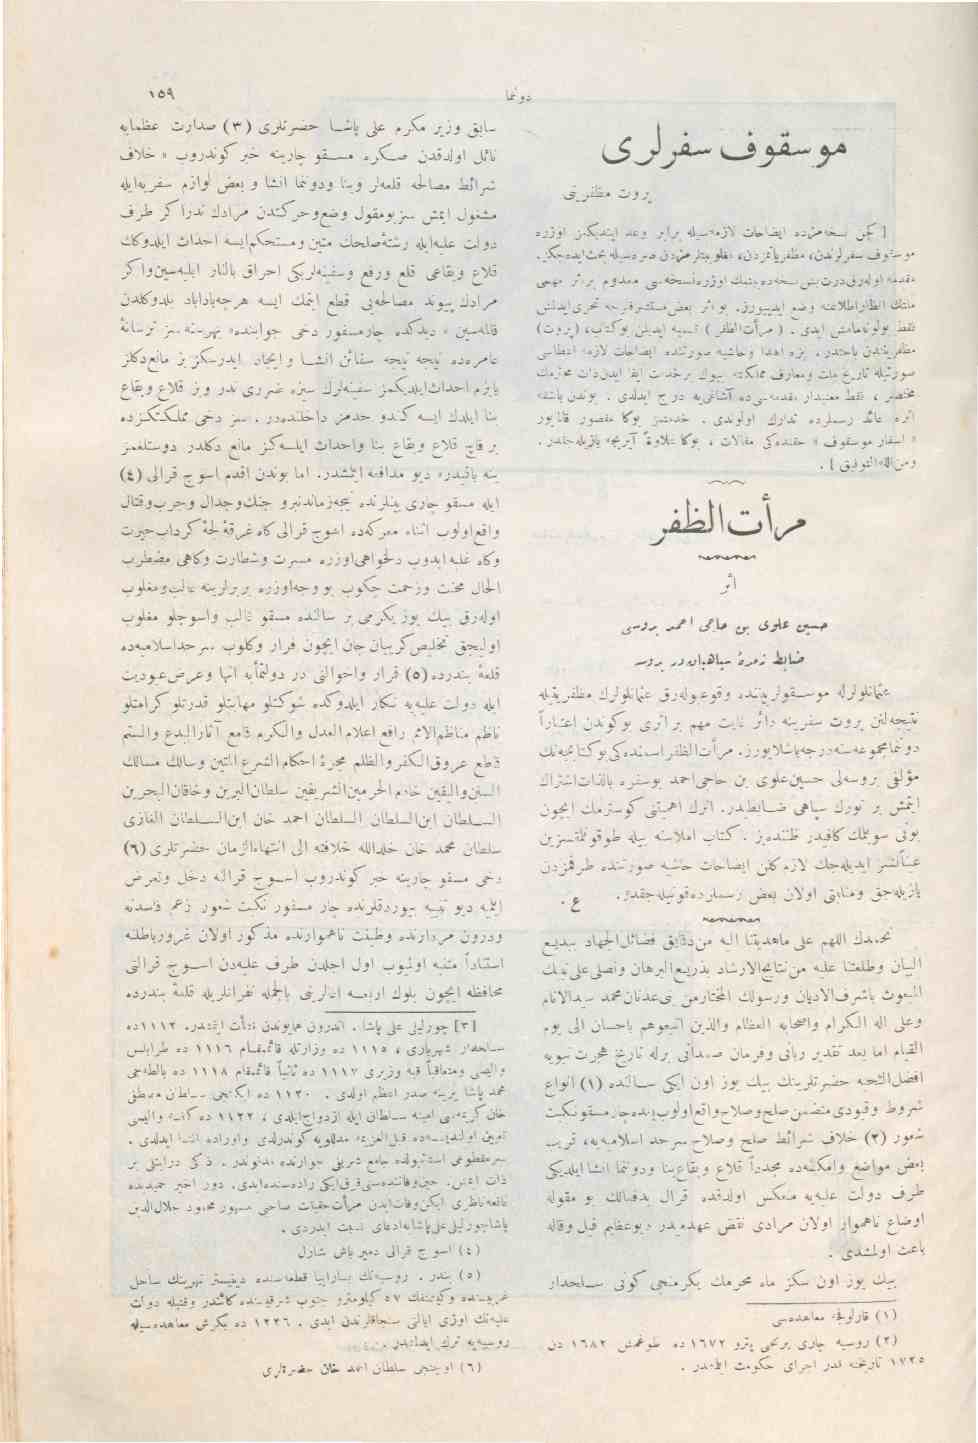 دونما
١٥٩
موسقوف سفرلری
پروت مظفریتی
[ کچن نسخه‌مزده ایضاحات لازمه‌سیله برابر وعد ایتدیکمز اوزره
موسقوف سفرلرندن، مظفریاتمزدن، مغلوبیتلرمزدن صره‌سیله بحث ایده‌جکز.
فقط بولونه‌مامش ایدی. ( مرأت‌الظفر ) تسمیه ایدیلن بوکتاب، (پروت)
مظفریتندن باحثدر. بزه اهدا وحاشیه صورتنده ایضاحات لازمه اعطاسی
صورتیله تاریخ ملت ومعارف مملکته بیوک برخدمت ایفا ایدن ذات محترمك
مختصر ، فقط مفیددار مقدمه‌سی‌ده آشاغی‌یه درج ایدلدی . بوندن باشقه
اثره عائد رسملرده تدارك اولوندی . خدمتمز بوکا مقصور قالیور
« اسفار موسقوف » حقنده‌کی مقالات ، بوکا علاوةً آیریجه یازیله‌جقدر .
ومن‌الله‌التوفیق ] .
مرأت‌الظفر
اثر
حسین علوی بن حاجی احمد بروسی
ضابط زمرهٔ سپاهیان در بروسه
عثمانلولرله موسقولر بیننده وقوعبوله‌رق عثمانلولرك مظفریتیله
نتیجه‌لنن پروت سفرینه دائر غایت مهم بر اثری بوکوندن اعتباراً
دونما مجموعه‌سنه درجه باشلایورز. مرأت الظفر اسمنده‌کی بوکتابجیه‌نك
مؤلفی بروسه‌لی حسین علوی بن حاجی احمد بوسفره بالذات اشتراك
ایتمش بر تورك سپاهی ضابطیدر. اثرك اهمیتنی کوسترمك ایچون
بونی سویلمك کافیدر ظننده‌یز . کتاب املاسنه بیله طوقونلمقسزین
عیناً نشر ایدیله‌جك لازم کلن ایضاحات حاشیه صورتنده طرفمزدن
یازیله‌جق ومناسبتی اولان بعض رسملرده قونیله‌جقدر. ع .
نحمدك اللهم علی ماهدیتنا الیه من دقایق فضائل‌الجهاد ببدیع
البیان وطلعتنا علیه من نتایج‌الارشاد بذریع‌البرهان ونصلی علی نبیك
المبعوث باشرف‌الادیان ورسولك المختار من بنی عدنان محمد سیدالانام
وعلی آله الکرام واصحابه العظام والذین اتبعوهم باحسان الی یوم
القیام اما بعد تقدیر ربانی وفرمان صمدانی برله تاریخ هجرت نبویه
افضل‌التحیه حضرتلرینك بیك یوز اون ایکی سالنده (١) انواع
شروط وقیودی متضمن صلح وصلاح واقع اولوب ینه چار مسقو نکبت
شعور (٢) خلاف شرائط صلح وصلاح سرحد اسلامیه‌یه، قریب
بعض مواضع وامکنه‌ده مجدداً قلاع وبقاع بنا ودونما انشا ایلدیکی
طرف دولت علیه‌یه منعکس اولدقده قرال بدفعالك بو مقوله
اوضاع ناهموار اولان مرادی نقض عهدمیدر دیو عظیم قیل وقاله
باعث اولمشدی .
بیك یوز اون سکز ماه محرمك یکرمنجی کونی سلحدار
(١) قارلوفچه معاهده‌سی
(٢) روسیه چاری برنجی پترو ١٦٧٢ ده طوغمش ١٦٨٢ دن
١٧٢٥ تاریخنه قدر اجرای حکومت ایلمشدر .
سابق وزیر مکرم علی پاشا حضرتلری (٣) صدارت عظمایه
نائل اولدقدن صکره مسقو چارینه خبر کوندروب « خلاف
شرائط مصالحه قلعه‌لر وبنا ودونما انشا و بعض لوازم سفریه‌ایله
مشغول ایمش سز بومقول وضع وحرکتدن مرادك ندر اکر طرف
دولت علیه‌ایله رشتهٔ صلحك متین ومستحکم ایسه احداث ایلدوکك
قلاع وبقاعی قلع ورفع وسفینه‌لریکی احراق بالنار ایله‌سین واکر
مرادك پیوند مصالحه‌یی قطع ایتمك ایسه هرچه باداباد بلدوکلدن
قالمه‌سین » دیدکده چار مسفور دخی جوابنده « بهرسنه سز ترسانهٔ
عامره‌ده نیجه نیجه سفائن انشا وایجاد ایدرسکز بز مانع دکلز
یا بزم احداث ایلدیکمز سفینه‌لرك سزه ضرری ندر وبز قلاع وبقاع
بنا ایلدك ایسه کندو حدمز داخلنده‌در . سز دخی مملکتکزده
بر قاچ قلاع وبقاع بنا واحداث ایلسه‌کز مانع دکلدر دوستلغمز
ینه باقیدر » دیو مدافعه ایتمشدر. اما بوندن اقدم اسوج قرالی (٤)
ایله مسقو چاری بینلرنده نیجه‌زماندنبرو جنك وجدال وحرب وقتال
واقع اولوب اثناء معرکه‌ده اسوج قرالی کاه غرقهٔ لجهٔ کرداب حیرت
وکاه غلبه ایدوب دلخواهی اوزره مسرت وشطارت وکاهی مضطرب
الحال محنت وزحمت چکوب بو وجه‌اوزره بربرلرینه غالب ومغلوب
اوله‌رق بیك یوز یکرمی بر سالنده مسقو غالب واسوجلو مغلوب
اولیجق تخلیص کریبان جان ایچون فرار وکلوب سرحد اسلامیه‌ده
قلعهٔ بندرده (٥) قرار واحوالنی در دولتمأبه انها وعرض عبودیت
ایله دولت علیه‌یه نکار ایلدوکده شوکتلو مهابتلو قدرتلو کرامتلو
ناظم مناظم‌الامم رافع اعلام العدل والکرم قامع آثارالبدع والستم
قاطع عروق‌الکفر والظلم مجرئ احکام الشرع المتین وسالك مسالك
السنن والیقین خادم‌الحرمین الشریفین سلطان‌البرین وخاقان‌البحرین
السلطان ابن‌السلطان السلطان احمد خان ابن‌السلطان الغازی
سلطان محمد خان خلدالله خلافته الی انتهاءالزمان حضرتلری (٦)
دخی مسقو چارینه خبر کوندروب اسوج قرالنه دخل وتعرض
ایلمیه دیو تنبیه بیوردقلرنده چار مسفور نکبت شعور زعم فاسدنه
ودرون مردارنده وطینت ناهموارنده مذکور اولان غرور باطلنه
استناداً متنبه اولمیوب اول اجلدن طرف علیه‌دن اسوج قرالنی
محافظه ایچون بلوك اربعه اغالرینی بالجمله نفراتلریله قلعهٔ بندرده
[٣] چورلیلی علی پاشا . اندرون همایوندن نشأت ایتمشدر. ١١١٢ ده
سلحدار شهریاری ، ١١١٥ ده وزارتله قائمقام ١١١٦ ده طرابلس
والیسی ومتعاقباً قبه وزیری ١١١٧ ده ثانیاً قائمقام ١١١٨ ده بالطه‌جی
محمد پاشا یرینه صدر اعظم اولدی . ١١٢٠ ده ایکنجی سلطان مصطفی
خان کریمه‌سی امینه سلطان ایله ازدواج ایلدی ، ١١٢٢ ده کفه والیسی
تعیین اولندیسه‌ده قبل‌العزیمه مدللویه کوندرلدی واوراده افنا ایدلدی .
سرمقطوعی استانبولده جامع شریفی جوارنده مدفوندر . ذکی درایتلی بر
ذات ایمش. حین وفاتنده سنی قرق ایکی راده‌سنده ایدی. دور اخیر حمیدیده
نافعه ناظری ایکن وفات ایدن مرأت حقیقت صاحبی مشهور محمود جلال‌الدین
پاشا چورلیلی علی پاشایه ادعای نسبت ایدردی .
(٤) اسوج قرالی دمیر باش شارل
(٥) بندر . روسیه‌نك بسارابیا قطعه‌سنده دینیستر نهرینك ساحل
غربیسنده وکیشنفك ٥٧ کیلومترو جنوب شرقیسنده کائندر وقتیله دولت
علیه‌نك اوزی ایالتی سنجاقلرندن ایدی . ١٢٢٦ ده بکرش معاهده‌سیله
روسیه‌یه ترك ایدلمشدر .
(٦) اوچنجی سلطان احمد خان حضرتلری